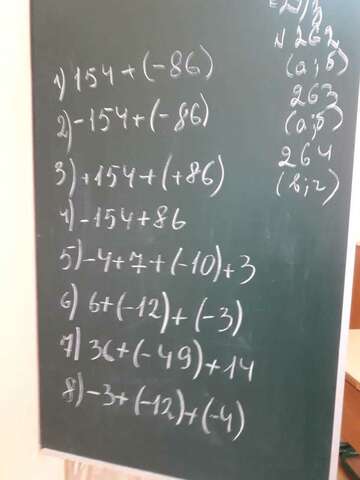 1) 154 + (-86)
2) -154 + (-86)
3) +154 + (+86)
4) -154 + 86
5) -4 + 7 + (-10) + 3
6) 6 + (-12) + (-3)
7) 36 + (-49) + 14
8) -3 + (-12) + (-4)
262
(а; б)
263
(а; б)
264
(в; г)